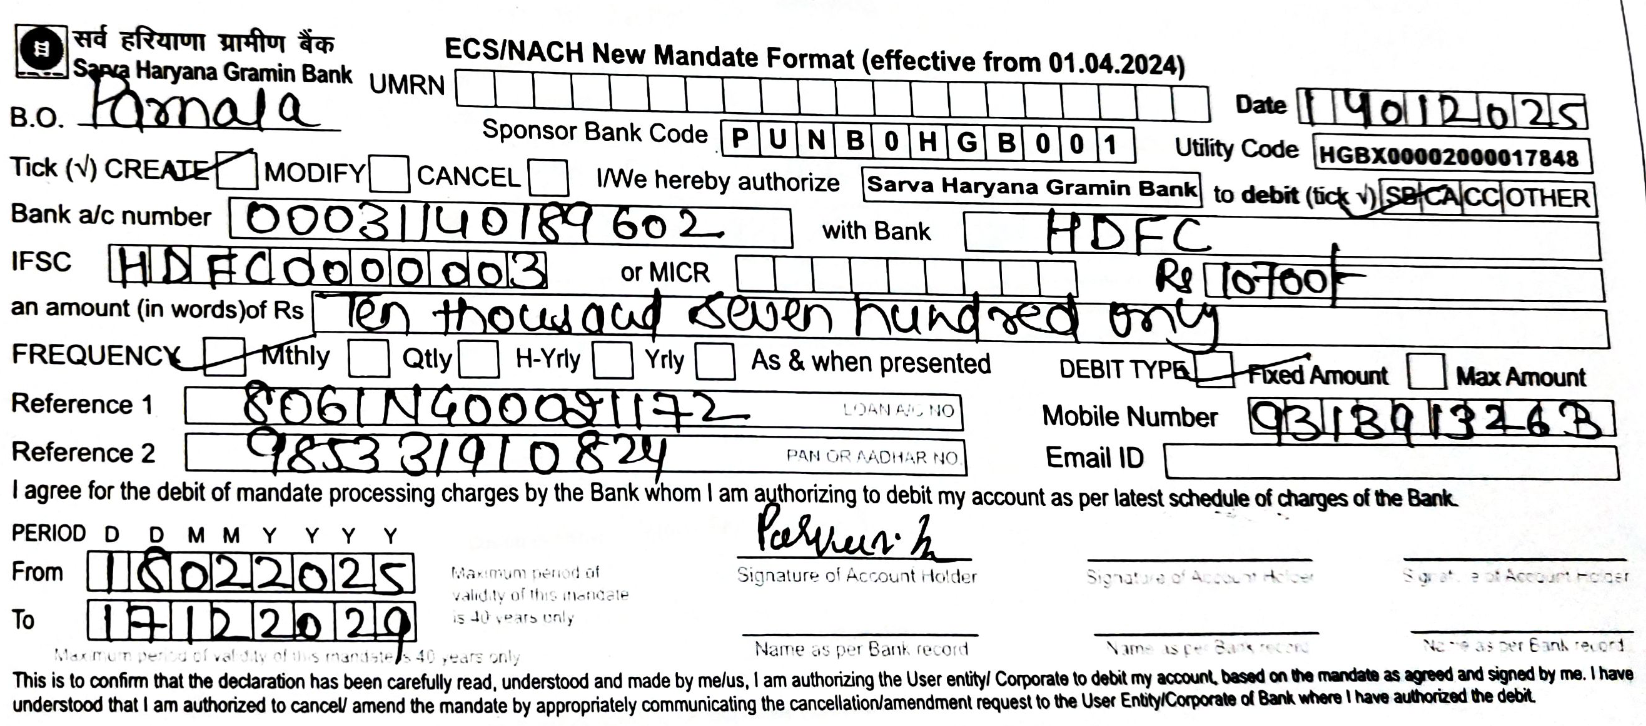 सर्व हरियाणा ग्रामीण बैंक
Sarva Haryana Gramin Bank
ECS/NACH New Mandate Format (effective from 01.04.2024)
UMRN
Date 14012025
B.O. Parnala
Sponsor Bank Code PUNB0HGB001 Utility Code HGBX00002000017848
Tick (√) CREATE MODIFY CANCEL I/We hereby authorize Sarva Haryana Gramin Bank to debit (tick √) SB CA CC OTHER
Bank a/c number 00031140189602 with Bank HDFC
IFSC HDFC0000003 or MICR Rs 10700/-
an amount (in words)of Rs Ten thousand seven hundred only
FREQUENCY Mthly Qtly H-Yrly Yrly As & when presented DEBIT TYPE Fixed Amount Max Amount
Reference 1 LOAN A/C NO Mobile Number
Reference 2 985331910824 PAN OR AADHAR NO. Email ID
I agree for the debit of mandate processing charges by the Bank whom I am authorizing to debit my account as per latest schedule of charges of the Bank.
PERIOD D D M M Y Y Y Y
From 18022025 Maximum period of validity of this mandate is 40 years only
To 17122029
Signature of Account Holder Signature of Account Holder Signature of Account Holder
Name as per Bank record Name as per Bank record Name as per Bank record
Maximum period of validity of this mandate is 40 years only
This is to confirm that the declaration has been carefully read, understood and made by me/us, I am authorizing the User entity/ Corporate to debit my account, based on the mandate as agreed and signed by me. I have
understood that I am authorized to cancel/ amend the mandate by appropriately communicating the cancellation/amendment request to the User Entity/Corporate of Bank where I have authorized the debit.